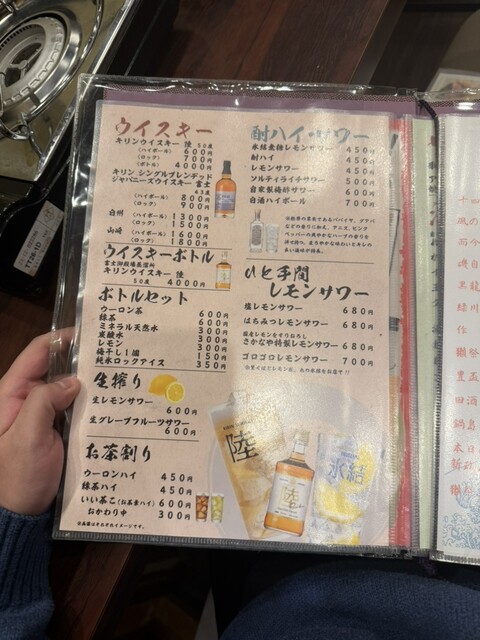 ウイスキー
キリンウイスキー 陸 50度
(ハイボール) 600円
(ロック) 700円
(ボトル) 4000円
キリン シングルブレンデッド
ジャパニーズウイスキー 富士
43度
(ハイボール) 800円
(ロック) 900円
白州 (ハイボール) 1300円
(ロック) 1500円
山崎 (ハイボール) 1600円
(ロック) 1800円
ウイスキーボトル
富士御殿場蒸溜所
キリンウイスキー 陸
50度 4000円
ボトルセット
ウーロン茶 600円
緑茶 600円
ミネラル天然水 300円
炭酸水 300円
レモン 300円
梅干し1個 150円
純氷ロックアイス 350円
生搾り
生レモンサワー
600円
生グレープフルーツサワー
600円
お茶割り
ウーロンハイ 450円
緑茶ハイ 450円
いい茶こ(お茶束ハイ) 600円
おかわり中 300円
※画像はそれぞれイメージです。
酎ハイ・サワー
氷結無糖レモンサワー 450円
酎ハイ 450円
レモンサワー 450円
ソルティライチサワー 500円
自家製梅紗サワー 600円
白酒ハイボール 700円
ひと手間
レモンサワー
塩レモンサワー 680円
はちみつレモンサワー 680円
国産レモンをすりおろし
さかなや特製レモンサワー 680円
ゴロゴロレモンサワー 700円
陸
氷結
陸